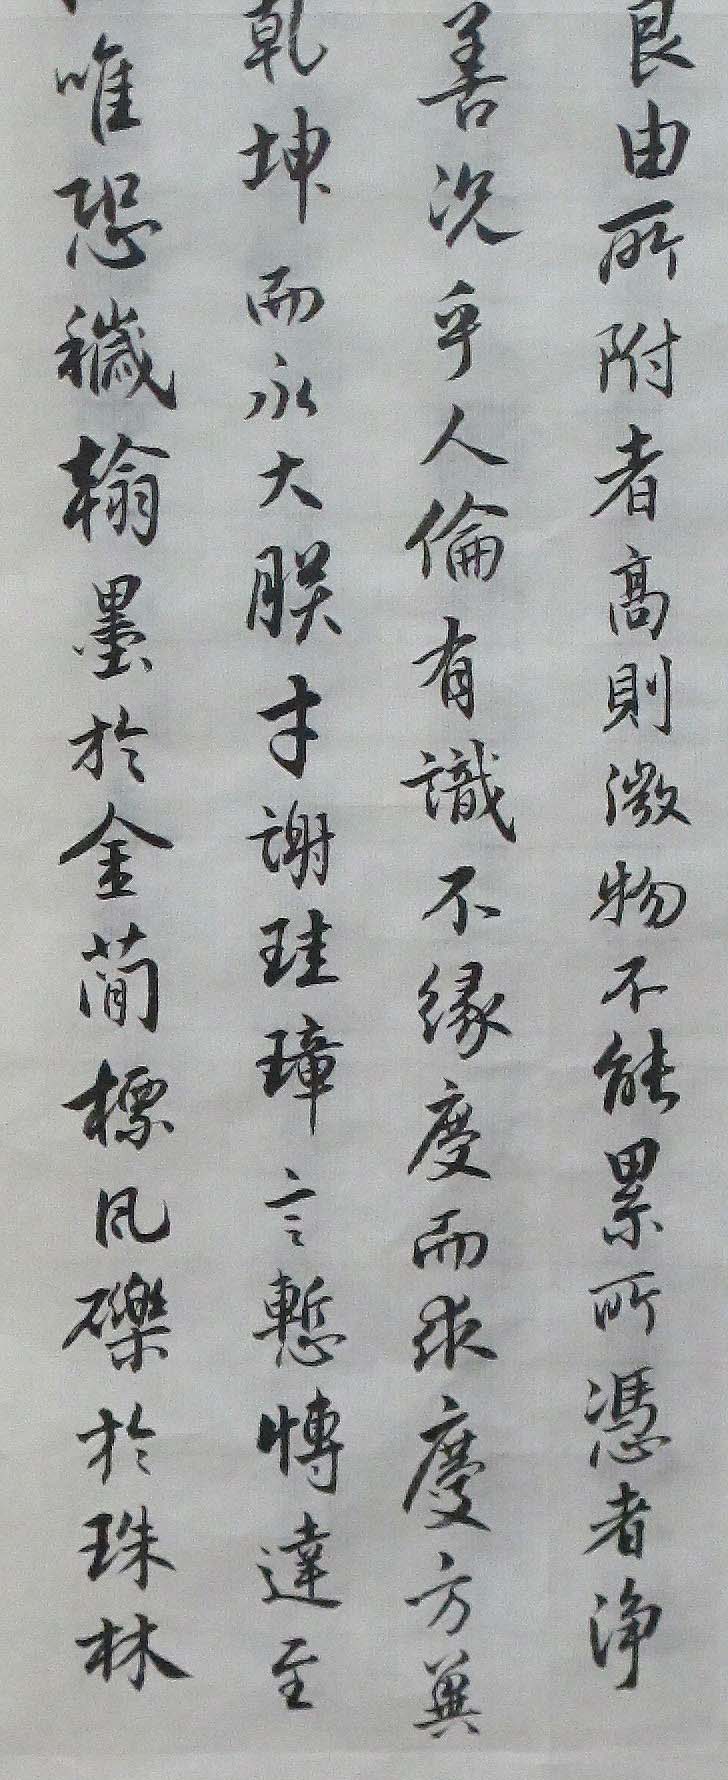 良由所附者高則微物不能累所憑者浄
善況乎人倫有識不緣慶而求慶方冀
乾坤而永大朕才謝珪璋言慙博達至
唯恐穢翰墨於金簡標瓦礫於珠林